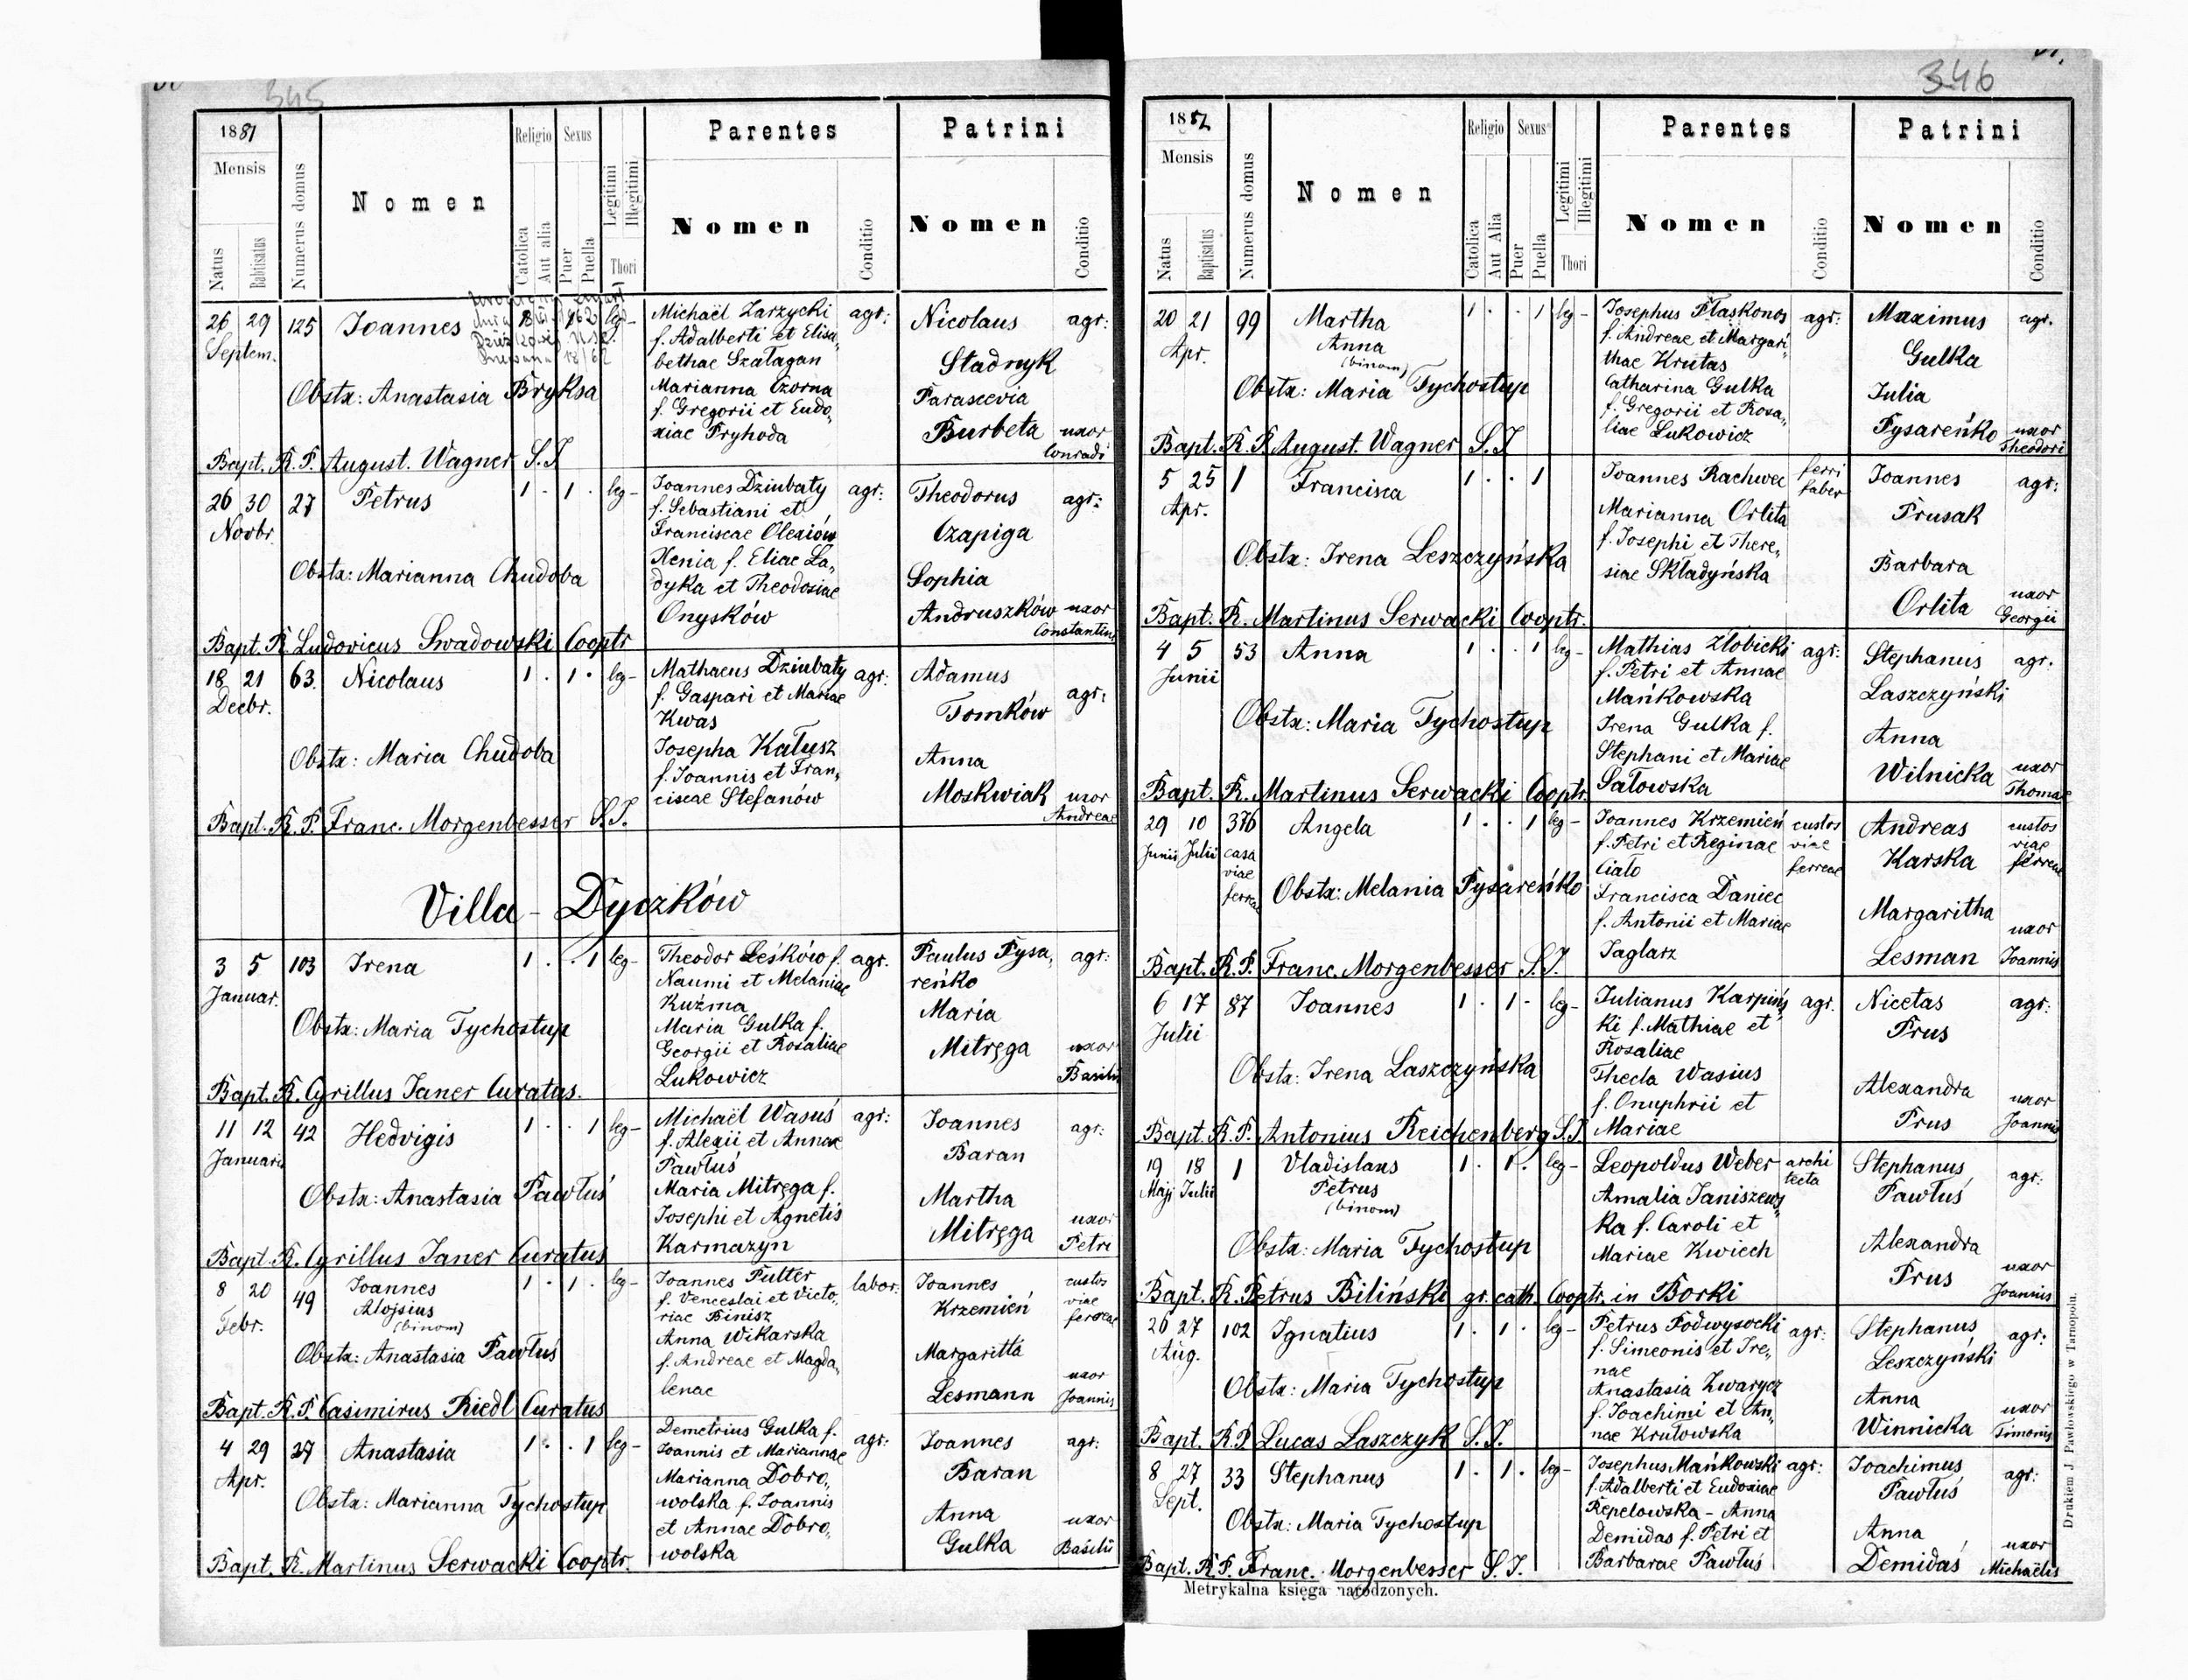 345
1881
Mensis
Natus
Babtisatus
Numerus domus
Nomen
Religio
Catolica
Aut alia
Sexus
Puer
Puella
Legitimi
Illegitimi
Thori
Parentes
Nomen
Conditio
Patrini
Nomen
Conditio
26 29 125 Joannes leg- Michaël Zarzycki agr: Nicolaus agr:
Septem. f. Adalberti et Elisa„ Stadnyk
bethae Szatagan
Obstx: Anastasia Bryksa Marianna Czorna Parascevia
f. Gregorii et Eudo„ Burbeta uxor
xiae Pryhoda Conradi
Bapt. R. P. August. Wagner S.J
26 30 27 Petrus 1 . 1 . leg- Joannes Dziubaty agr: Theodorus agr:
Novbr. f. Sebastiani et Czapiga
Franciscae Olexiów
Obstx: Marianna Chudoba Xenia f. Eliae La„ Sophia
dyka et Theodosiae Andruszków uxor
Onysków Constantini
Bapt. R. Ludovicus Swadowski Cooptr
18 21 63. Nicolaus 1 . 1 . leg- Mathaeus Dziubaty agr: Adamus agr:
Decbr. f. Gaspari et Mariae Tomków
Kwas
Obstx: Maria Chudoba Josepha Kałusz Anna
f. Joannis et Fran„ Moskwiak uxor
ciscae Stefanów Andreae
Bapt. R. P. Franc. Morgenbesser S.J.
Villa - Dyczków
3 5 103 Irena 1 . . 1 leg- Theodor Leśków f. agr. Paulus Pysa„ agr:
Januar. Naumi et Melaniae reńko
Kuźma Maria
Obstx: Maria Tychostup Maria Gulka f. Mitręga uxor
Georgii et Rosaliae Basilii
Lukowicz
Bapt. R. Cyrillus Janer Curatus.
11 12 42 Hedvigis 1 . . 1 leg- Michaël Wasuś agr: Joannes agr:
Januarii f. Alexii et Annae Baran
Pawłuś
Obstx: Anastasia Pawłuś Maria Mitręga f. Martha
Josephi et Agnetis Mitręga uxor
Karmazyn Petri
Bapt. R. Cyrillus Janer Curatus
8 20 49 Joannes 1 . 1 . leg- Joannes Putter labor: Joannes custos
Febr. Alojsius f. Venceslai et Victo„ Krzemień viae
(binom) riae Binisz ferreae
Obstx: Anastasia Pawłuś Anna Wikarska Margaritta
f. Andreae et Magda„ uxor
lenae Lesmann Joannis
Bapt. R. P. Casimirus Riedl Curatus
4 29 27 Anastasia 1 . . 1 leg- Demetrius Gulka f. agr: Joannes agr:
Apr. Joannis et Mariannae Baran
Marianna Dobro„
Obstx: Marianna Tychostup wolska f. Joannis Anna uxor
et Annae Dobro„ Gulka Basilii
wolska
Bapt. R. Martinus Serwacki Cooptr.
346
1882
Mensis
Natus
Baptisatus
Numerus domus
Nomen
Religio
Catolica
Aut Alia
Sexus
Puer
Puella
Legitimi
Illegitimi
Thori
Parentes
Nomen
Conditio
Patrini
Nomen
Conditio
20 21 99 Martha 1 . . 1 leg- Josephus Płaskonos agr: Maximus agr.
Apr. Anna f. Andreae et Margari„ Gulka
(binom) thae Krutas
Obstx: Maria Tychostup Catharina Gulka Julia
f. Gregorii et Rosa„ Pysareńko uxor
liae Lukowicz Theodori
Bapt. R. P. August. Wagner S.J
5 25 1 Francisca 1 . . 1 Joannes Rachwec ferri faber Joannes agr:
Apr. Marianna Orlita Prusak
f. Josephi et There„
Obstx: Irena Leszczyńska siae Składyńska Barbara
Orlita uxor
Georgii
Bapt. R. Martinus Serwacki Cooptr.
4 5 53 Anna 1 . . 1 leg- Mathias Złobicki agr: Stephanus agr.
Junii f. Petri et Annae Laszczyński
Mańkowska
Obstx: Maria Tychostup Irena Gulka f. Anna
Stephani et Mariae Wilnicka uxor
Sałowska Thomae
Bapt. R. Martinus Serwacki Cooptr.
29 10 376 Angela 1 . . 1 leg- Joannes Krzemień custos Andreas custos
Junii Julii casa f. Petri et Reginae viae Karska viae
viae Ciało ferreae ferreae
ferreae Obstx: Melania Pysareńko Francisca Daniec Margaritha
f. Antonii et Mariae uxor
Jaglarz Lesman Joannis
Bapt. R. P. Franc. Morgenbesser S.J.
6 17 87 Joannes 1 . 1 . leg- Julianus Karpińs„ agr. Nicetas agr:
Julii ki f. Mathiae et Prus
Rosaliae
Obstx: Irena Laszczyńska Thecla Wasius Alexandra
f. Onuphrii et Prus uxor
Mariae Joannis
Bapt. R. P. Antonius Reichenberg S.J.
19 18 1 Vladislaus 1 . 1 . leg- Leopoldus Weber archi Stephanus agr:
Maji Julii Petrus Amalia Janiszews„ tecta Pawłuś
(binom) ka f. Caroli et
Obstx: Maria Tychostup Mariae Kwiech Alexandra
Prus uxor
Joannis
Bapt. R. Petrus Biliński gr. cath. Cooptr. in Borki
26 27 102 Ignatius 1 . 1 . leg- Petrus Podwysocki agr: Stephanus agr:
Aug. f. Simeonis et Ire„ Leszczyński
nae
Obstx: Maria Tychostup Anastasia Zwarycz Anna
f. Joachimi et An„ Winnicka uxor
nae Krutowska Timonis
Bapt. R. P Lucas Laszczyk S.J.
8 27 33 Stephanus 1 . 1 . leg- Josephus Mańkowski agr: Joachimus agr:
Sept. f. Adalberti et Eudoxiae Pawłuś
Repelowska - Anna
Obstx: Maria Tychostup Demidas f. Petri et Anna uxor
Barbarae Pawłuś Demidaś Michaëlis
Bapt. R. P. Franc. Morgenbesser S.J.
Metrykalna księga narodzonych.
Drukiem J. Pawłowskiego w Tarnopolu.